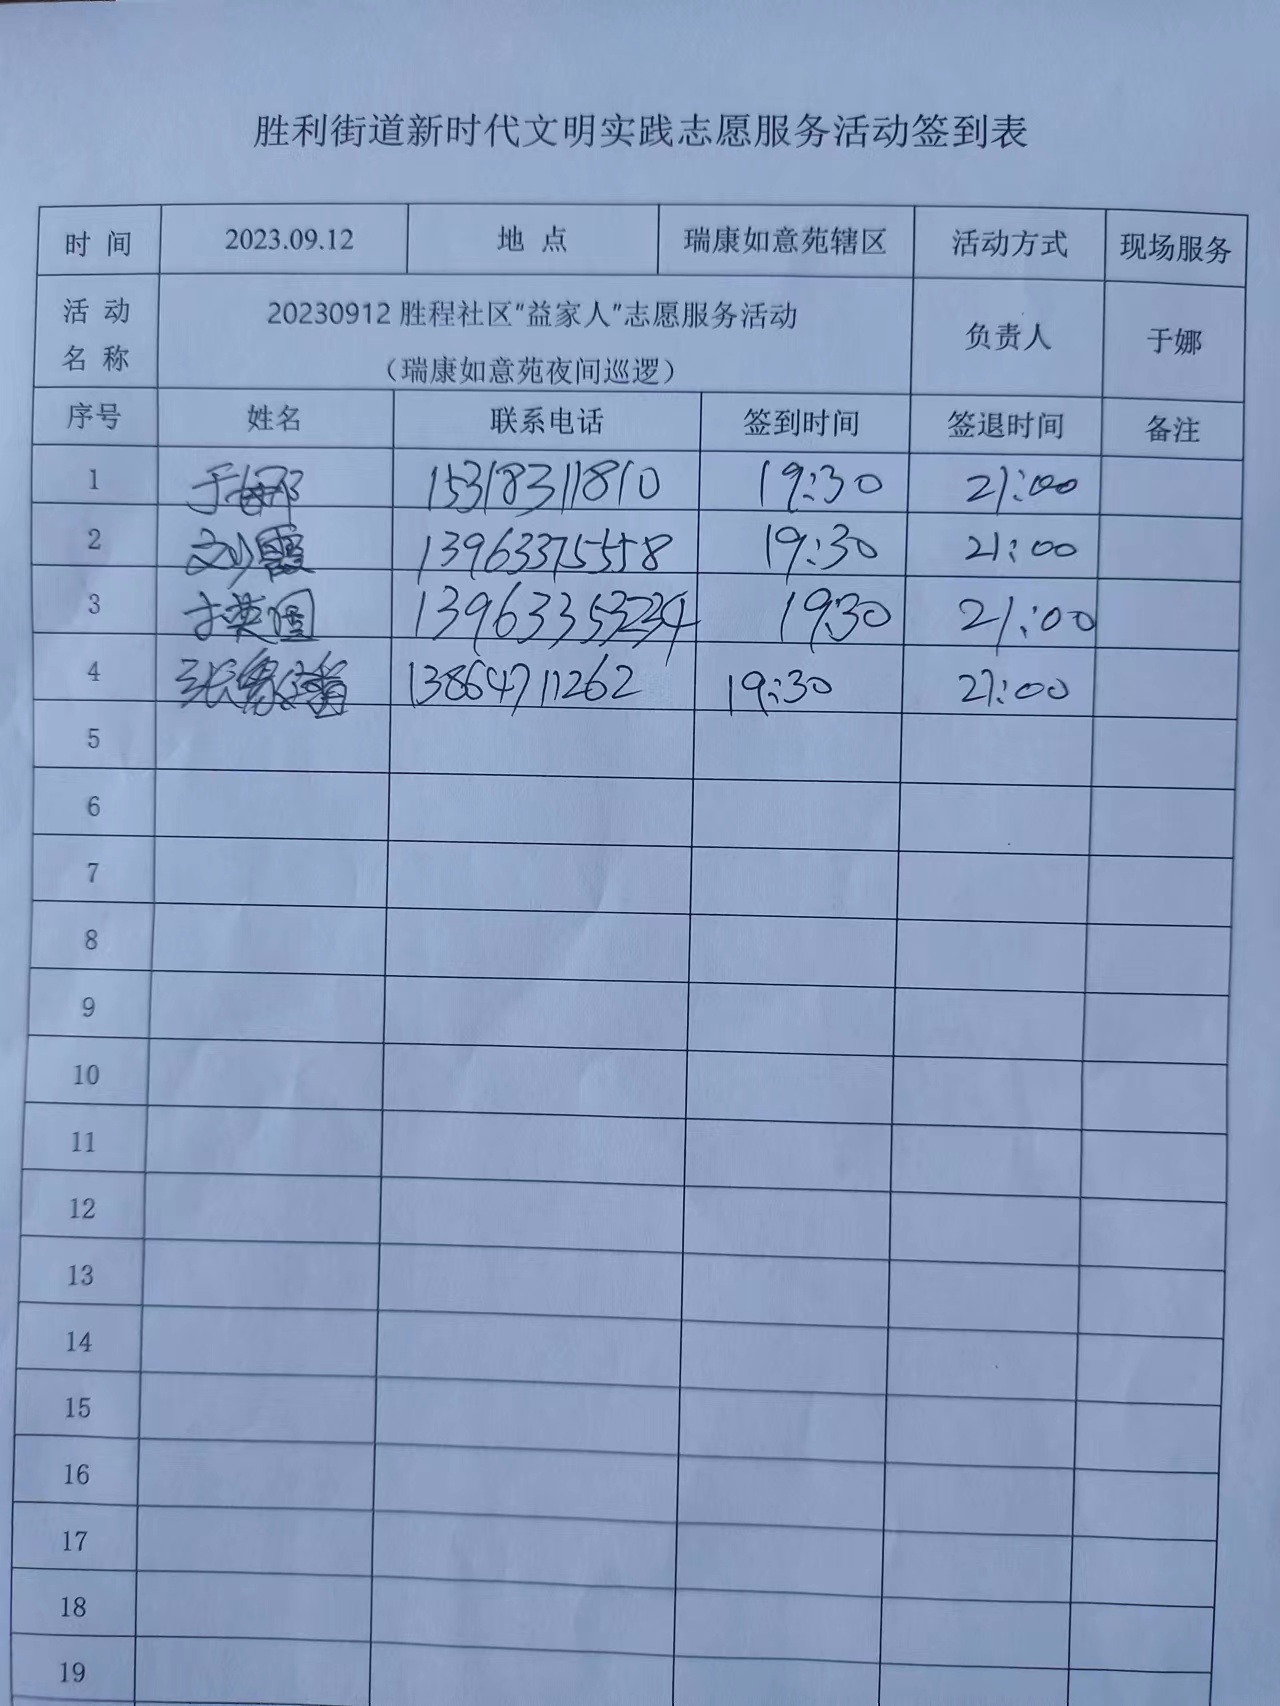 胜利街道新时代文明实践志愿服务活动签到表
时 间 2023.09.12 地 点 瑞康如意苑辖区 活动方式 现场服务
活 动 名 称 20230912 胜程社区“益家人”志愿服务活动 负责人 于娜
（瑞康如意苑夜间巡逻）
序号 姓名 联系电话 签到时间 签退时间 备注
1 于娜 15318311810 19:30 21:00
2 刘霞 13963375558 19:30 21:00
3 于英国 13963353234 19:30 21:00
4 张 13864711262 19:30 21:00
5
6
7
8
9
10
11
12
13
14
15
16
17
18
19